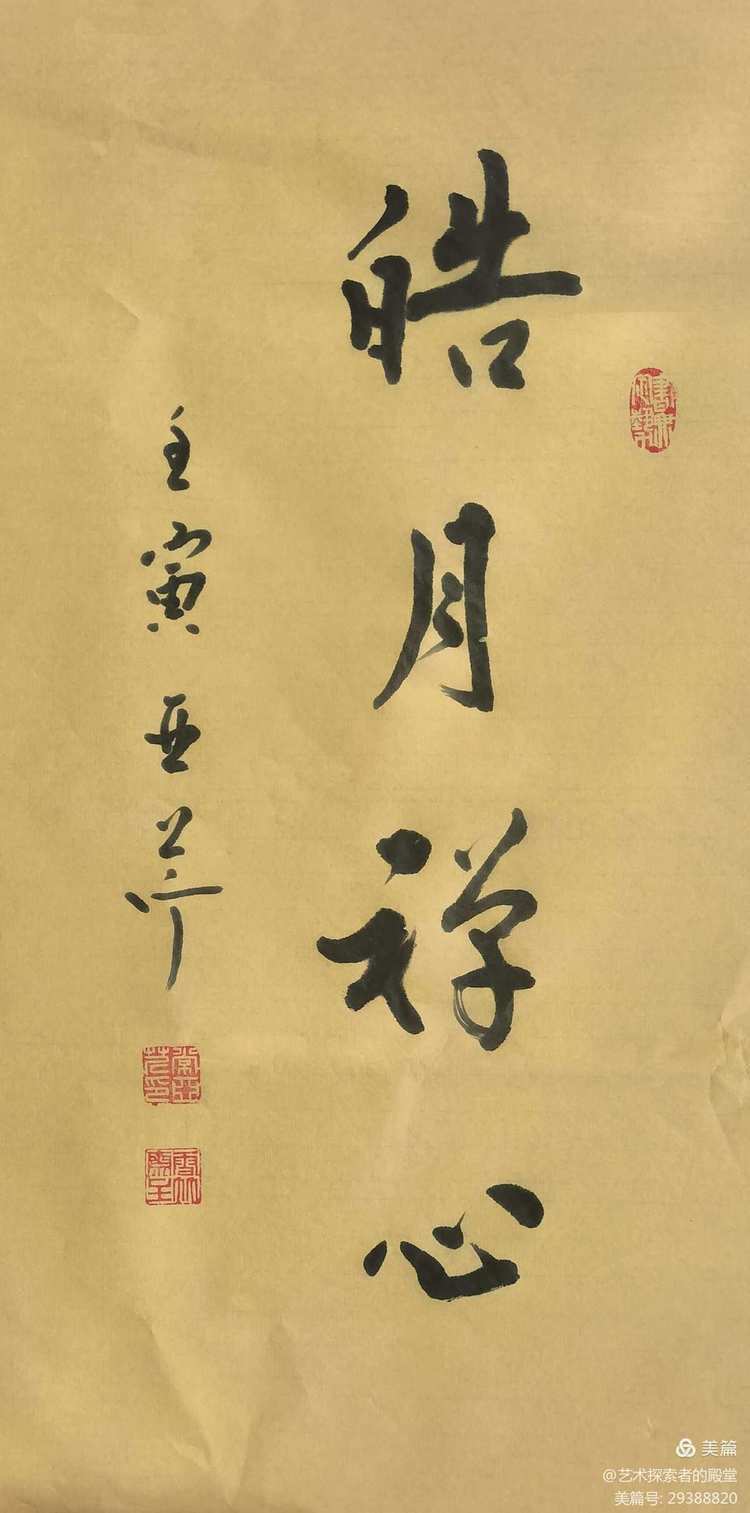 皓月禅心
壬寅亚萍
美篇
@艺术探索者的殿堂
美篇号: 29388820